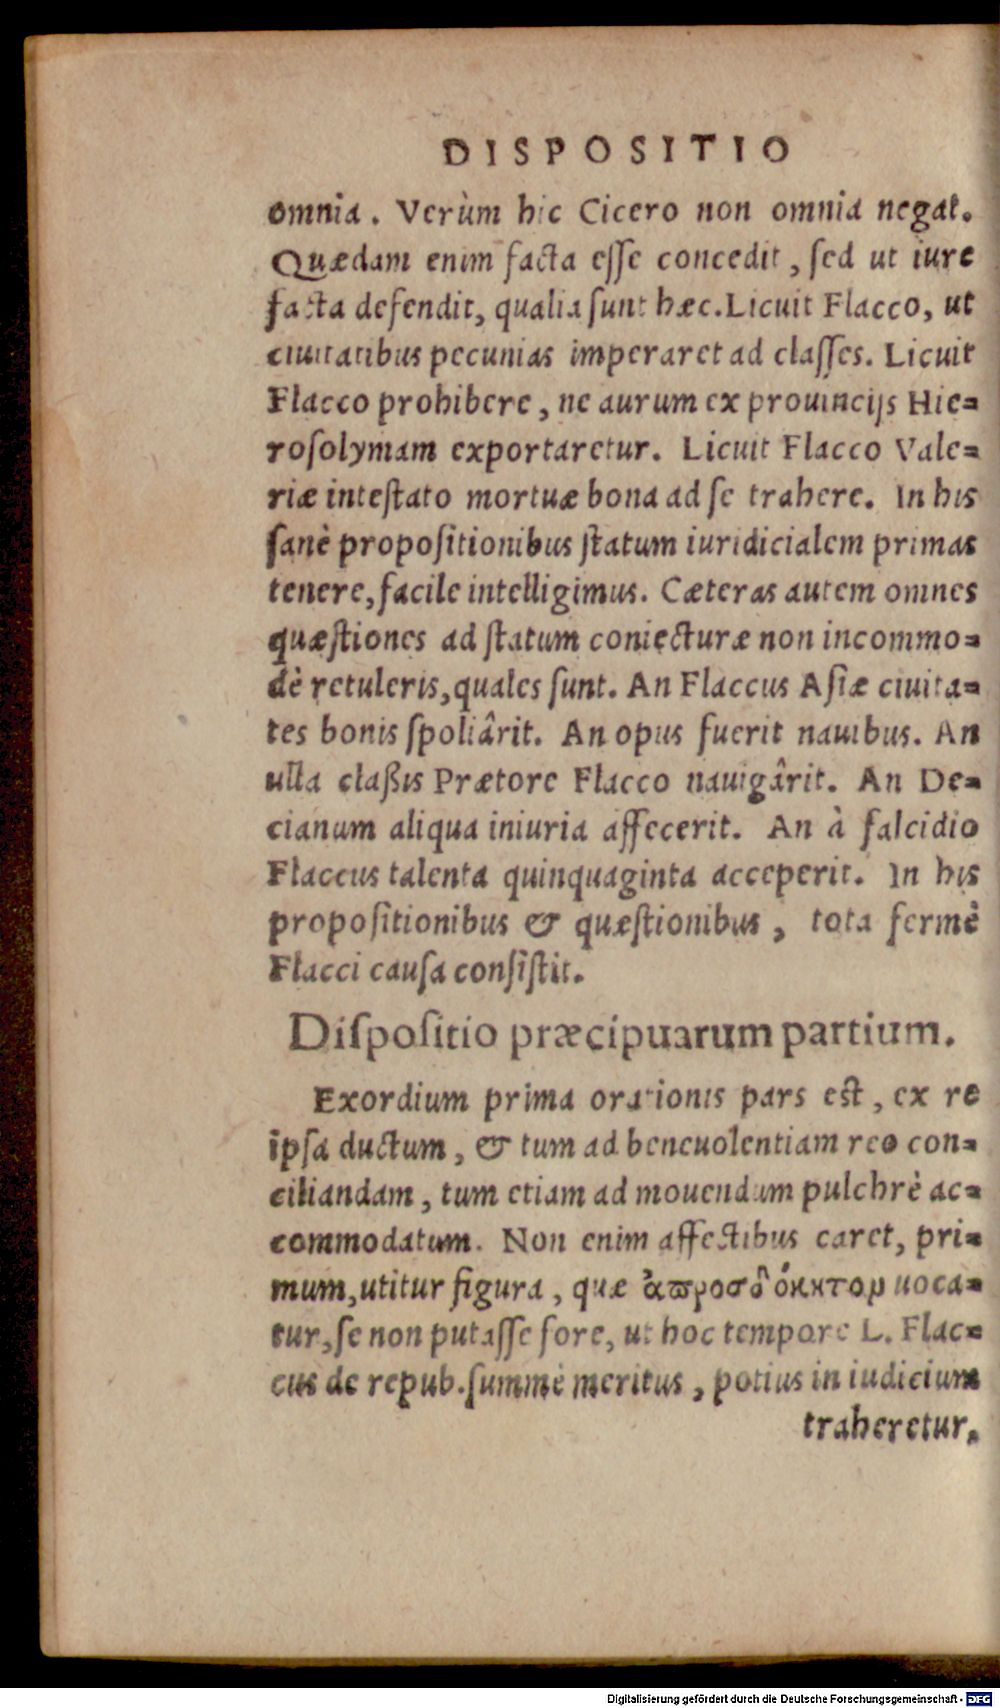 DISPOSITIO
omnia. Verùm hic Cicero non omnia negat.
Quædam enim facta esse concedit, sed ut iure
facta defendit, qualia sunt hæc. Licuit Flacco, ut
ciuitatibus pecunias imperaret ad classes. Licuit
Flacco prohibere, ne aurum ex prouincijs Hie=
rosolymam exportaretur. Licuit Flacco Vale=
riæ intestato mortuæ bona ad se trahere. In his
sanè propositionibus statum iuridicialem primas
tenere, facile intelligimus. Cæteras autem omnes
quæstiones ad statum coniecturæ non incommo=
dè retuleris, quales sunt. An Flaccus Asiæ ciuita=
tes bonis spoliârit. An opus fuerit nauibus. An
ulla claßis Prætore Flacco nauigârit. An De=
cianum aliqua iniuria affecerit. An à falcidio
Flaccus talenta quinquaginta acceperit. In his
propositionibus & quæstionibus, tota fermè
Flacci causa consistit.
Dispositio præcipuarum partium.
Exordium prima orationis pars est, ex re
ipsa ductum, & tum ad beneuolentiam reo con=
ciliandam, tum etiam ad mouendum pulchrè ac=
commodatum. Non enim affectibus caret, pri=
mum, utitur figura, quæ uoca=
tur, se non putasse fore, ut hoc tempore L. Flac=
cus de repub. summè meritus, potius in iudicium
traheretur.
Digitalisierung gefördert durch die Deutsche Forschungsgemeinschaft - DFG